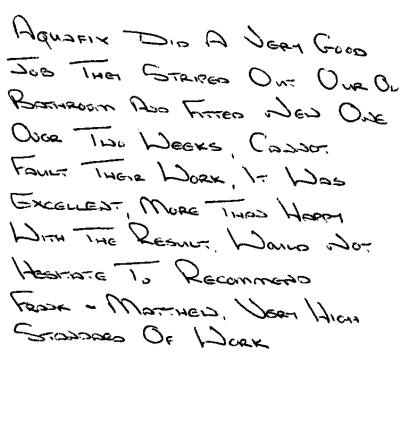 Aquafix Did A Very Good
Job They Striped Out Our Ol
Bathroom And Fitted New One
Over Two Weeks, Cannot
Fault Their Work, It Was
Excellent, More Than Happy
With The Result. Would Not
Hesitate To Recommend
Frank - Matthew, Very High
Standard Of Work